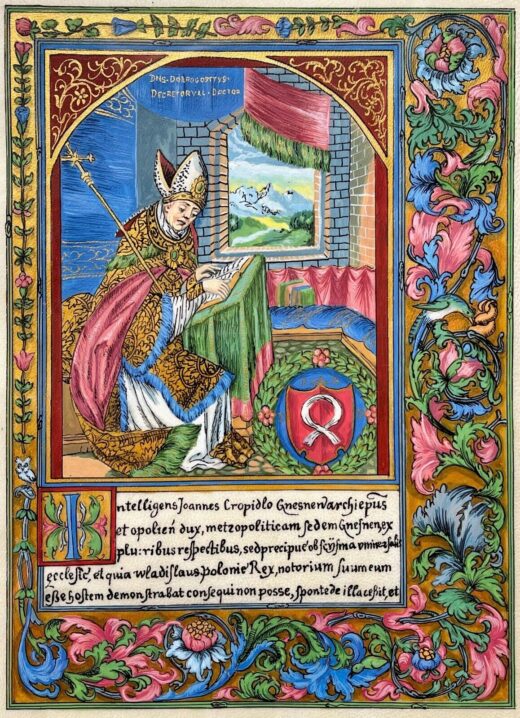 DNS·DOBROGOSTVS·
DECRETORVM·DOCTOR
Intelligens Joannes Cropidlo Gnesnen archiepūs
et opolień dux, metropoliticam sedem Gnesnen, ex
plu:ribus respectibus, sed precipue ob scÿsma
ecclesie, et quia wladislaus polonie Rex, notorium suum eum
eße hostem demonstrabat consequi non posse, sponte de illa ceßit, et